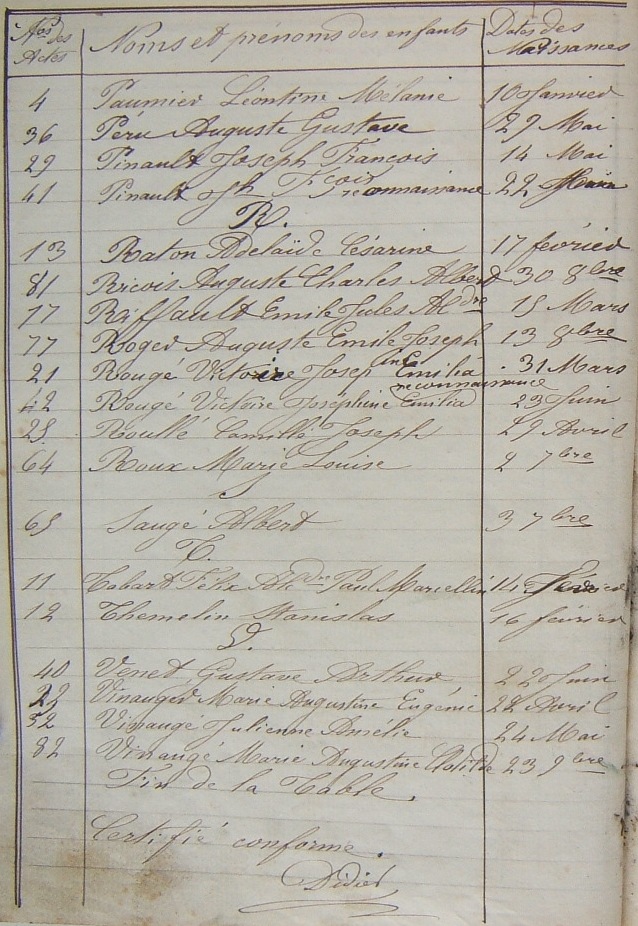 Nos des Actes Noms et prénoms des enfants Dates des Naissances
4 Paumier Léontine Mélanie 10 Janvier
36 Péru Auguste Gustave 29 Mai
29 Pinault Joseph François 14 Mai
41 Pinault Jph Fçois reconnaissance 22
R.
13 Raton Adelaïde Césarine 17 février
81 Ricois Auguste Charles Albert 30 8bre
17 Riffault Emile Jules Aldre 15 Mars
77 Roger Auguste Emile Joseph 13 8bre
21 Rougé Victoire Joseph ine Emilia 31 Mars
42 Rougé Victoire Joséphine Emilia reconnaissance 23 Juin
25. Roullé Camille Joseph 29 Avril
64 Roux Marie Louise 2 7bre
S
65 Saugé Albert 3 7bre
T.
11 Tabart Félix Aldre Paul Marcellin 14 Février
12 Themelin Stanislas 16 février
V.
40 Venet Gustave Arthur 22 Juin
22 Vinauger Marie Augustine Eugénie 28 Avril
32 Vinaugé Julienne Amélie 24 Mai
82 Vinaugé Marie Augustine Clotilde 23 9bre
Fin de la Table.
Certifié conforme.
Didier